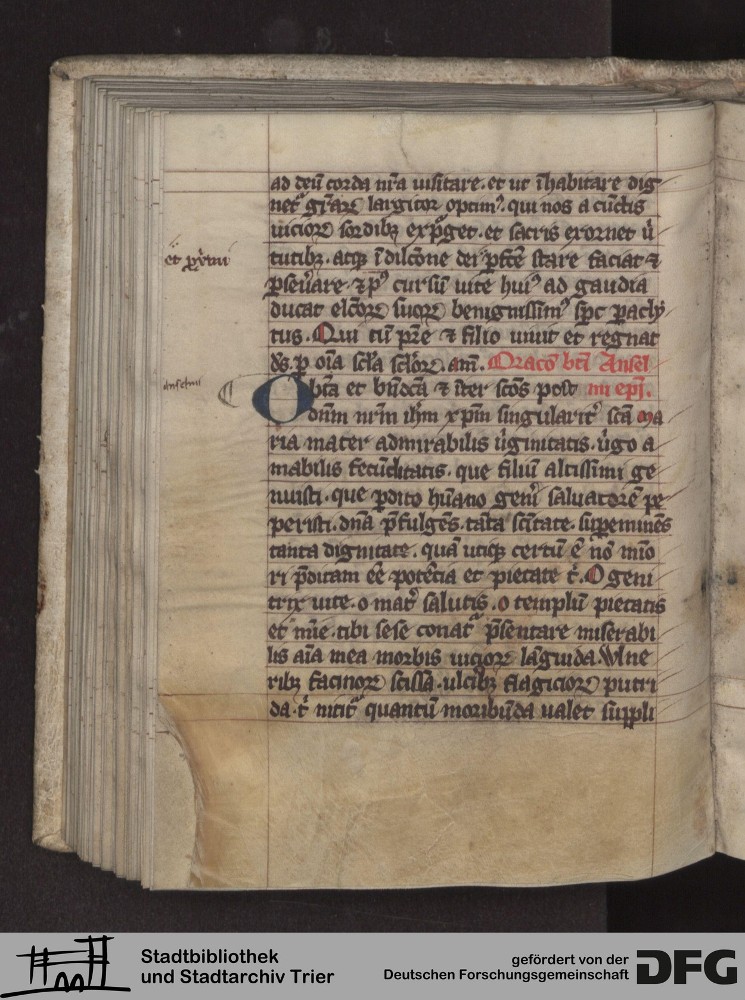 ad deū corda nr̄a uisitare. et ut īhabitare dig
netᷣ grāꝝ largitor optimꝰ. qui nos a cūctis
uicioꝝ sordibꝫ expᷣget. et sacris exornet ů
tutibꝫ. atqꝫ ī dilc̄one dei ꝑfc̄te stare faciat ⁊
ꝑseůare. ⁊ pꝰ cursū uite huiꝰ ad gaudia
ducat elc̄oꝝ suoꝝ benignissimꝰ spc paclȳ
tus. Qui cū pr̄e ⁊ filio uiuit et regnat
ds̄. ꝑ oīa scl̄a scl̄oꝝ. am̄. Oracō bt̄i Ansel
Obta et bn̄dcā ⁊ īter scōs post mi ep̄i.
dn̄m nr̄m ihm xp̄m singularitᷣ scā ma
ria mater admirabilis ůginitatis. ůgo a
mabilis fecūditatis. que filiū altissimi ge
nuisti. que ꝑdito hūano genᷣi saluatorē pe
peristi. dn̄a p̄fulgēs. tāta scītate. suꝑeminēs
tanta dignitate. quā utiqꝫ certū ē nō mīo
ri p̄ditam eē potētia et pietate t̄. O geni
trix uite. o matᷣ salutis. o templū pietatis
et mīe. tibi sese conatᷣ p̄sentare miserabi
lis aīa mea morbis uicioꝝ lāguida. Vlne
ribꝫ facinoꝝ scissa. ulcibꝫ flagicioꝝ putri
da. t̄ nititᷣ quantū moribūda ualet suppli
anselmi
Stadtbibliothek
und Stadtarchiv Trier
gefördert von der
Deutschen Forschungsgemeinschaft
DFG